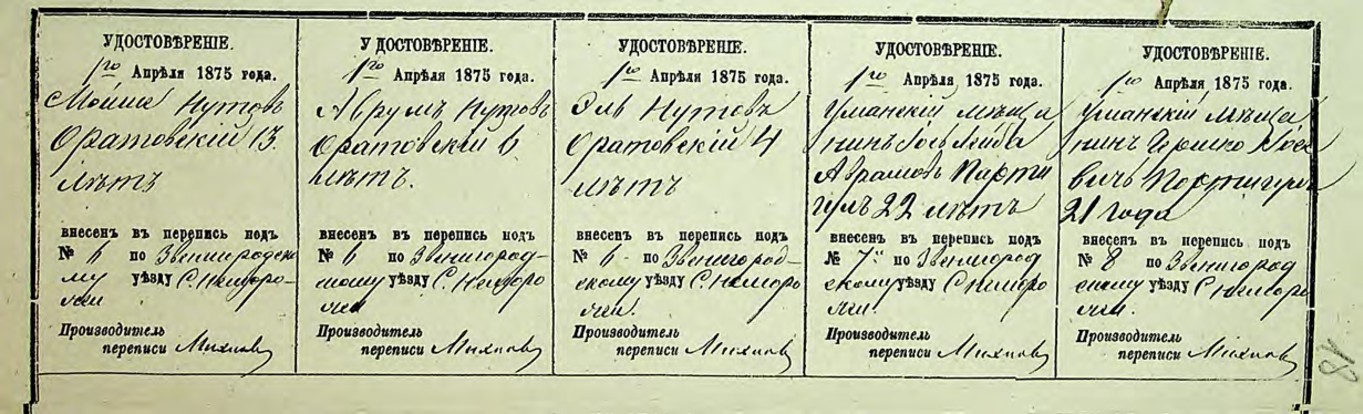 УДОСТОВѢРЕНІЕ.
1го Апрѣля 1875 года.
Мойше Нутовъ
Оратовскій 13
лѣтъ
внесенъ въ перепись подъ
№ 6 по Звенигородско
му уѣзду С. Неморо-
жи
Производитель
переписи Михнов
УДОСТОВѢРЕНІЕ.
1го Апрѣля 1875 года.
Аврумъ Нутовъ
Оратовскій 6
лѣтъ.
внесенъ въ перепись подъ
№ 6 по Звенигород-
скому уѣзду С. Неморо
жи
Производитель
переписи Михнов
УДОСТОВѢРЕНІЕ.
1го Апрѣля 1875 года.
Эль Нутовъ
Оратовскій 4
лѣтъ
внесенъ въ перепись подъ
№ 6 по Звенигород-
скому уѣзду С. Неморо
жи.
Производитель
переписи Михнов
УДОСТОВѢРЕНІЕ.
1го Апрѣля 1875 года.
Уманскій мѣща
нинъ Іось Лейба
Аврамовъ Порту
гулъ 22 лѣтъ
внесенъ въ перепись подъ
№ 7 по Звенигород
скому уѣзду С Неморо
жи.
Производитель
переписи Михнов
УДОСТОВѢРЕНІЕ.
1го Апрѣля 1875 года.
Уманскій мѣща
нинъ Гершко Іосе
вичъ
21 года
внесенъ въ перепись подъ
№ 8 по Звенигород
скому уѣзду С Неморо
жи.
Производитель
переписи Михнов